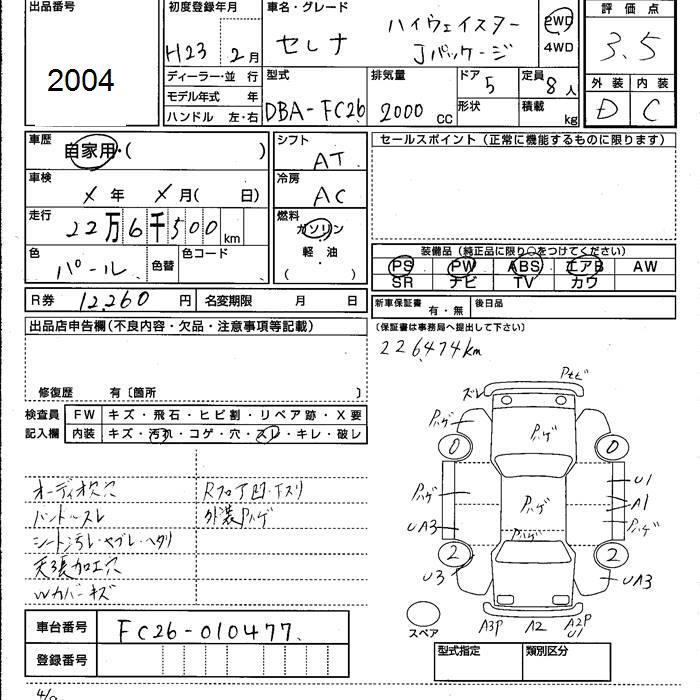 出品番号
2004
初度登録年月
H23 2月
車名・グレード
セレナ ハイウェイスター Jパッケージ
2WD
4WD
評価点
3.5
外装 内装
D C
ディーラー・並 行
モデル年式 年
ハンドル 左・右
型式
DBA-FC26
排気量
2000 CC
ドア 5
形状
定員 8人
積載 kg
車歴
自家用・( )
車検
X 年 X 月( 日)
走行
22万6千500 km
色
パール
色替
色コード
シフト
AT
冷房
AC
燃料
ガソリン
軽・油
( )
セールスポイント(正常に機能するものに限ります)
装備品(純正品に限り○をつけてください)
PS PW ABS エアB AW
SR ナビ TV カワ
R券 12,260 円 名変期限 月 日
新車保証書 有・無 後日品
(保証書は事務局へ提出して下さい)
226,474km
出品店申告欄(不良内容・欠品・注意事項等記載)
修復歴 有〔箇所 〕
検査員 FW キズ・飛石・ヒビ割・リペア跡・X要
記入欄 内装 キズ・汚れ・コゲ・穴・スレ・キレ・破レ
オーディオ欠穴 Rフロア凹・下スリ
ハンドルスレ 外装Pハゲ
シート汚レ・ヤブレ・ヘタリ
天張加工穴
Wカバーキズ
車台番号 FC26-010477
登録番号
Pトビ
ズレ
Pハゲ
Pハゲ
0
0
Pハゲ
Pハゲ
U1
A1
Pハゲ
UA3
Pハゲ
2
2
U3
UA3
スペア
A3P A2 A2P
U1
型式指定 類別区分